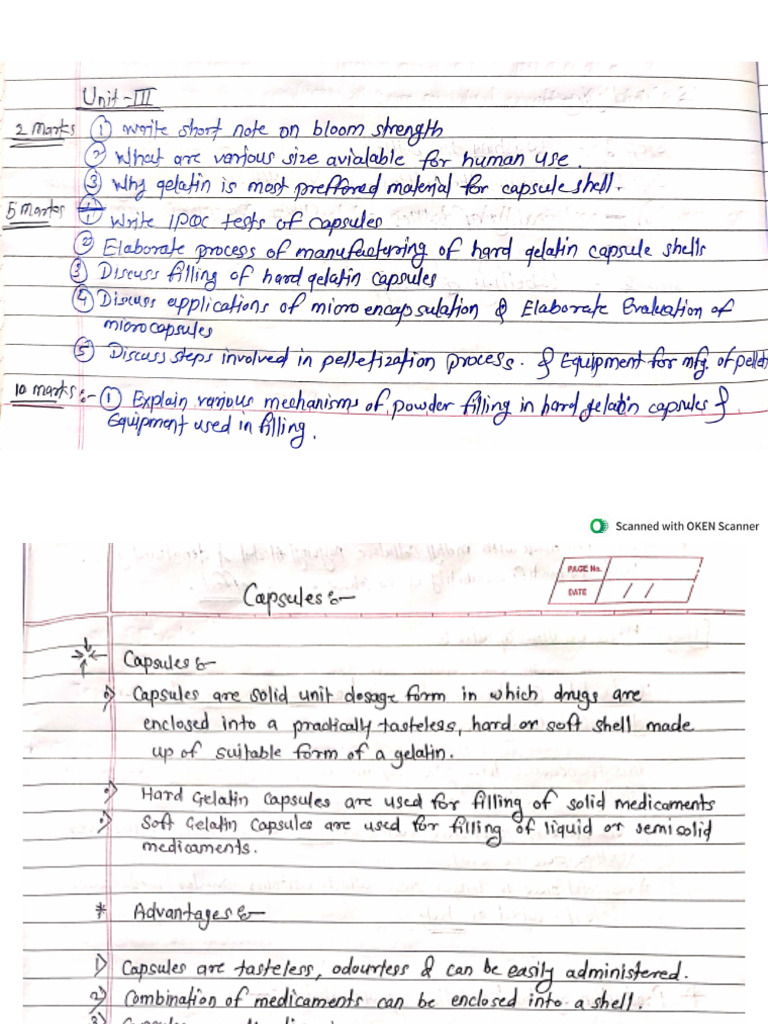 Unit-III
2 Marks ① Write short note on bloom strength
② What are various size avialable for human use.
③ Why gelatin is most preffored material for capsule shell.
5 Marks ① Write IPQC tests of capsules
② Elaborate process of manufacterring of hard gelatin capsule shells
③ Discuss filling of hard gelatin capsules
④ Discuss applications of micro encapsulation & Elaborate Evaluation of
microcapsules
⑤ Discuss steps involved in pelletization process. & Equipment for mfg. of pellet
10 marks:- ① Explain various mechanisms of powder filling in hard gelatin capsules &
Equipment used in filling.
Scanned with OKEN Scanner
PAGE No.
DATE / /
Capsules:-
Capsules:-
Capsules are solid unit dosage form in which drugs are
enclosed into a practically tasteless, hard or soft shell made
up of suitable form of a gelatin.
Hard Gelatin Capsules are used for filling of solid medicaments
Soft Gelatin Capsules are used for filling of liquid or semisolid
medicaments.
* Advantages:-
1) Capsules are tasteless, odourless & can be easily administered.
2) Combination of medicaments can be enclosed into a shell.
3)